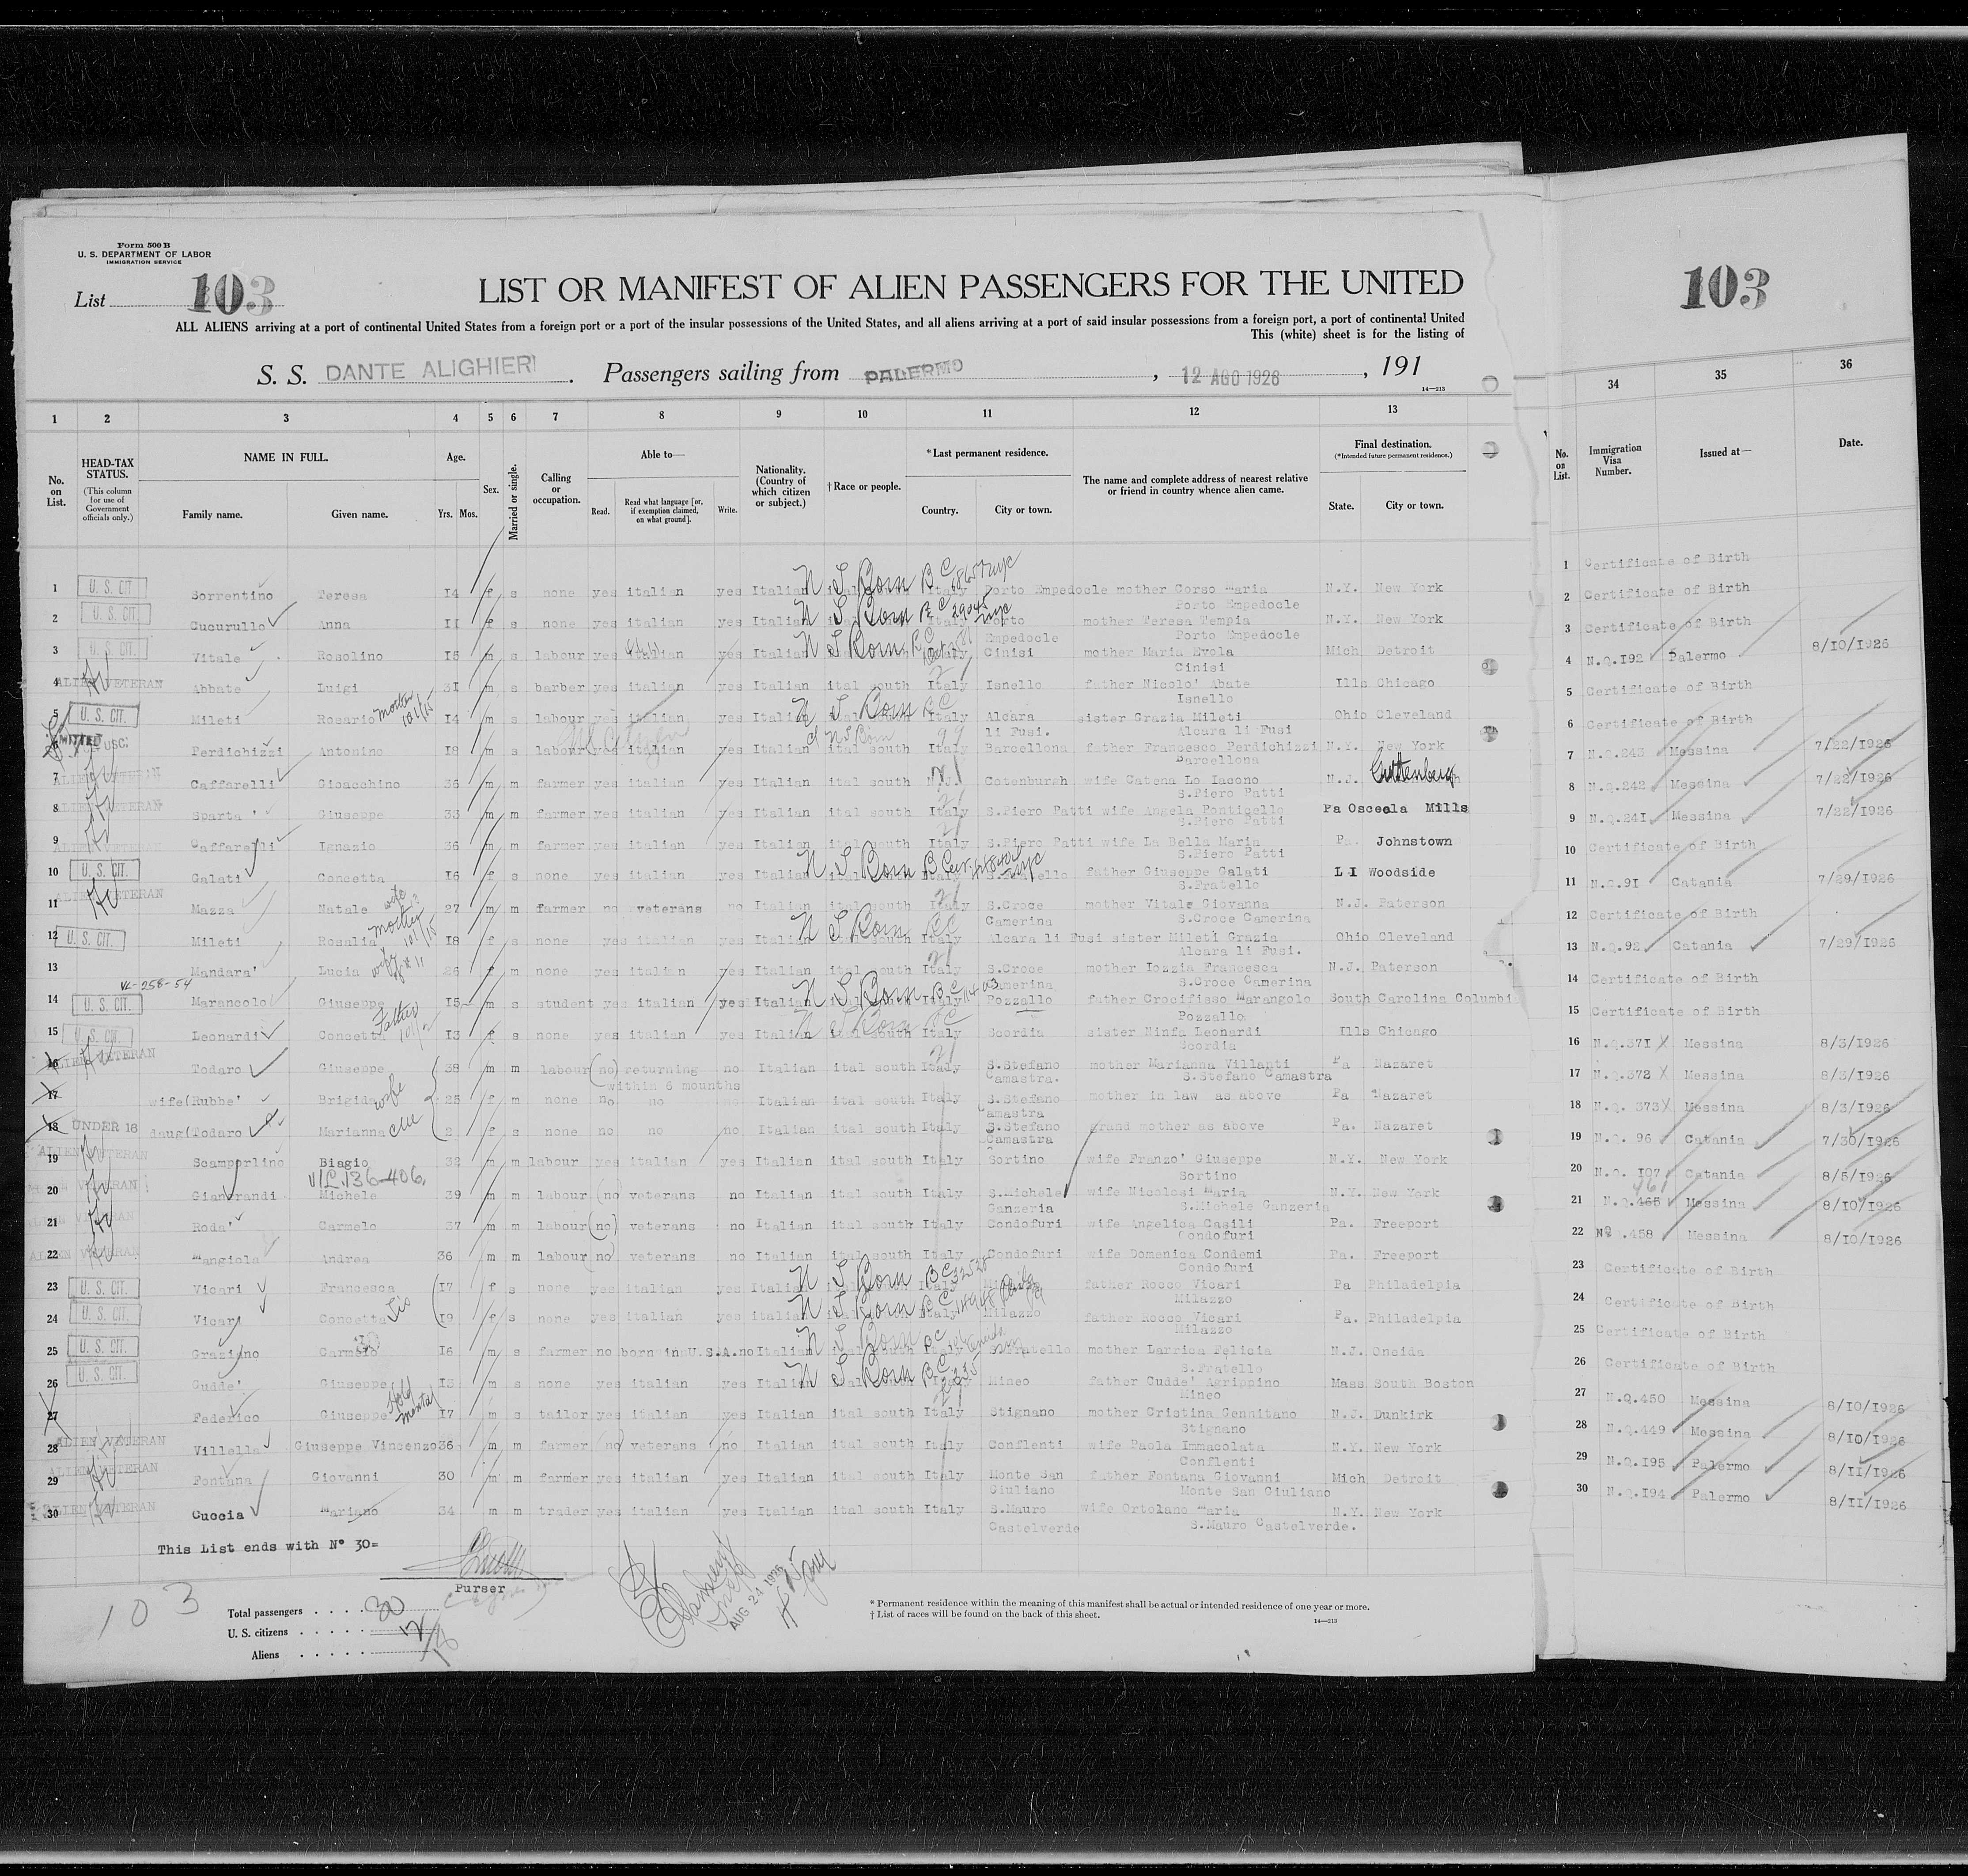 Form 500 B
U. S. DEPARTMENT OF LABOR
IMMIGRATION SERVICE
List 103
LIST OR MANIFEST OF ALIEN PASSENGERS FOR THE UNITED
103
ALL ALIENS arriving at a port of continental United States from a foreign port or a port of the insular possessions of the United States, and all aliens arriving at a port of said insular possessions from a foreign port, a port of continental United
This (white) sheet is for the listing of
S. S. DANTE ALIGHIERI . Passengers sailing from PALERMO , 12 AGO 1926 , 191
14—213
1 2 3 4 5 6 7 8 9 10 11 12 13 34 35 36
No. on List.
HEAD-TAX STATUS.
(This column for use of Government officials only.)
NAME IN FULL.
Family name. Given name.
Age.
Yrs. Mos.
Sex.
Married or single.
Calling or occupation.
Able to—
Read. Read what language [or, if exemption claimed, on what ground]. Write.
Nationality. (Country of which citizen or subject.)
† Race or people.
* Last permanent residence.
Country. City or town.
The name and complete address of nearest relative or friend in country whence alien came.
Final destination.
(*Intended future permanent residence.)
State. City or town.
No. on List.
Immigration Visa Number.
Issued at—
Date.
1 U. S. CIT. Sorrentino Teresa 14 f s none yes italian yes Italian N S Born B C Italy Porto Empedocle mother Corso Maria N.Y. New York 1 Certificate of Birth
Porto Empedocle
2 U. S. CIT. Cucurullo Anna 11 f s none yes italian yes Italian N S Born B C 29045 nyc Porto mother Teresa Tempia N.Y. New York 2 Certificate of Birth
Empedocle Porto Empedocle
3 U. S. CIT. Vitale Rosolino 15 m s labour yes italian yes Italian N S Born B C Italy Cinisi mother Maria Evola Mich Detroit 3 Certificate of Birth
Cinisi
4 ALIEN VETERAN Abbate Luigi 31 m s barber yes italian yes Italian ital south Italy Isnello father Nicolo' Abate Ills Chicago 4 N.Q.192 Palermo 8/10/1926
Isnello
5 U. S. CIT. Mileti Rosario 14 m s labour yes italian yes Italian N S Born B C Italy Alcara sister Grazia Mileti Ohio Cleveland 5 Certificate of Birth
li Fusi. Alcara li Fusi
6 Perdichizzi Antonino 18 m s labour yes italian yes Italian ital south Italy Barcellona father Francesco Perdichizzi N.Y. New York 6 Certificate of Birth
Barcellona
7 ALIEN VETERAN Caffarelli Gioacchino 36 m m farmer yes italian yes Italian ital south Cotenburgh wife Catena Lo Iacono N.J. Guttenberg 7 N.Q.243 Messina 7/22/1926
S.Piero Patti
8 ALIEN VETERAN Sparta' Giuseppe 33 m m farmer yes italian yes Italian ital south Italy S.Piero Patti wife Angela Ponticello Pa Osceola Mills 8 N.Q.242 Messina 7/22/1926
S.Piero Patti
9 ALIEN VETERAN Caffarelli Ignazio 36 m m farmer yes italian yes Italian ital south Italy S.Piero Patti wife La Bella Maria Pa. Johnstown 9 N.Q.241 Messina 7/22/1926
S.Piero Patti
10 U. S. CIT. Galati Concetta 16 f s none yes italian yes Italian N S Born B C S.Fratello father Giuseppe Galati L I Woodside 10 Certificate of Birth
S.Fratello
11 ALIEN VETERAN Mazza Natale 27 m m farmer no veterans no Italian ital south Italy S.Croce mother Vitale Giovanna N.J. Paterson 11 N.Q.91 Catania 7/29/1926
Camerina S.Croce Camerina
12 U. S. CIT. Mileti Rosalia 18 f s none yes italian yes Italian N S Born B C Italy Alcara li Fusi sister Mileti Grazia Ohio Cleveland 12 Certificate of Birth
Alcara li Fusi.
13 Mandara' Lucia wife 26 f m none yes italian yes Italian ital south Italy S.Croce mother Iozzia Francesca N.J. Paterson 13 N.Q.92 Catania 7/29/1926
Camerina S.Croce Camerina
VL-258-54
14 U. S. CIT. Marangolo Giuseppe 15 m s student yes italian yes Italian N S Born B C Italy Pozzallo father Crocifisso Marangolo South Carolina Columbi 14 Certificate of Birth
Pozzallo
15 U. S. CIT. Leonardi Concetta Father 13 f s none yes italian yes Italian N S Born B C Italy Scordia sister Ninfa Leonardi Ills Chicago 15 Certificate of Birth
Scordia
16 ALIEN VETERAN Todaro Giuseppe 38 m m labour (no) returning no Italian ital south Italy S.Stefano mother Marianna Villanti Pa Nazaret 16 N.Q.371 Messina 8/3/1926
within 6 mounths Camastra. S.Stefano Camastra
17 wife(Rubbe' Brigida wife 25 f m none no no Italian ital south Italy S.Stefano mother in law as above Pa Nazaret 17 N.Q.372 Messina 8/3/1926
Camastra
18 UNDER 16 daug(Todaro Marianna 2 f s none no no no Italian ital south Italy S.Stefano grand mother as above Pa. Nazaret 18 N.Q. 373 Messina 8/3/1926
Camastra
19 ALIEN VETERAN Scamporlino Biagio 32 m m labour yes italian yes Italian ital south Italy Sortino wife Franzo' Giuseppe N.Y. New York 19 N.Q. 96 Catania 7/30/1926
Sortino
V/L.136-406.
20 ALIEN VETERAN Gianfrandi Michele 39 m m labour (no) veterans no Italian ital south Italy S.Michele wife Nicolosi Maria N.Y. New York 20 N.Q. 107 Catania 8/5/1926
Ganzeria S.Michele Ganzeria
21 ALIEN VETERAN Roda' Carmelo 37 m m labour (no) veterans no Italian ital south Italy Condofuri wife Angelica Casili Pa. Freeport 21 N.Q.465 461 Messina 8/10/1926
Condofuri
22 ALIEN VETERAN Mangiola Andrea 36 m m labour (no) veterans no Italian ital south Italy Condofuri wife Domenica Condemi Pa. Freeport 22 NQ.458 Messina 8/10/1926
Condofuri
23 U. S. CIT. Vicari Francesca 17 f s none yes italian yes Italian N S Born B C Milazzo father Rocco Vicari Pa Philadelpia 23 Certificate of Birth
Milazzo
24 U. S. CIT. Vicari Concetta Sis 19 f s none yes italian yes italian N S Born B C Italy Milazzo father Rocco Vicari Pa. Philadelpia 24 Certificate of Birth
Milazzo
25 U. S. CIT. Graziano Carmelo 16 m s farmer no born in U.S.A. no Italian N S Born B C S.Fratello mother Larrica Felicia N.J. Oneida 25 Certificate of Birth
S.Fratello
26 U. S. CIT. Gudde' Giuseppe 13 m s none yes italian yes Italian N S Born B C Mineo father Cudde' Agrippino Mass South Boston 26 Certificate of Birth
Mineo
27 Federico Giuseppe Hold mental 17 m s tailor yes italian yes Italian ital south Italy Stignano mother Cristina Gennitano N.J. Dunkirk 27 N.Q.450 Messina 8/10/1926
Stignano
28 ALIEN VETERAN Villella Giuseppe Vincenzo 36 m m farmer (no) veterans no Italian ital south Italy Conflenti wife Paola Immacolata N.Y. New York 28 N.Q.449 Messina 8/10/1926
Conflenti
29 ALIEN VETERAN Fontana Giovanni 30 m m farmer yes italian yes Italian ital south Italy Monte San father Fontana Giovanni Mich Detroit 29 N.Q.195 Palermo 8/11/1926
Giuliano Monte San Giuliano
30 ALIEN VETERAN Cuccia Mariano 34 m m trader yes italian yes Italian ital south Italy S.Mauro wife Ortolano Maria N.Y. New York 30 N.Q.194 Palermo 8/11/1926
Castelverde S.Mauro Castelverde.
This List ends with N° 30=
Purser
103
Total passengers . . . . 30
U. S. citizens . . . . . 12
Aliens . . . . . 18
AUG 24 1926
* Permanent residence within the meaning of this manifest shall be actual or intended residence of one year or more.
† List of races will be found on the back of this sheet.
14—213